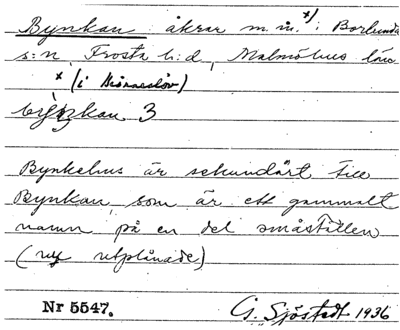 Bynkan åkrar m.m. x) i Borlunda
s:n, Frosta h:d, Malmöhus län
x (i Skarnslöv)
3
Bynkehus är sekundärt till
Bynkan, som är ett gammalt
namn på en del småställen
(nu utplånade)
Nr 5547. G. Sjöstedt 1936